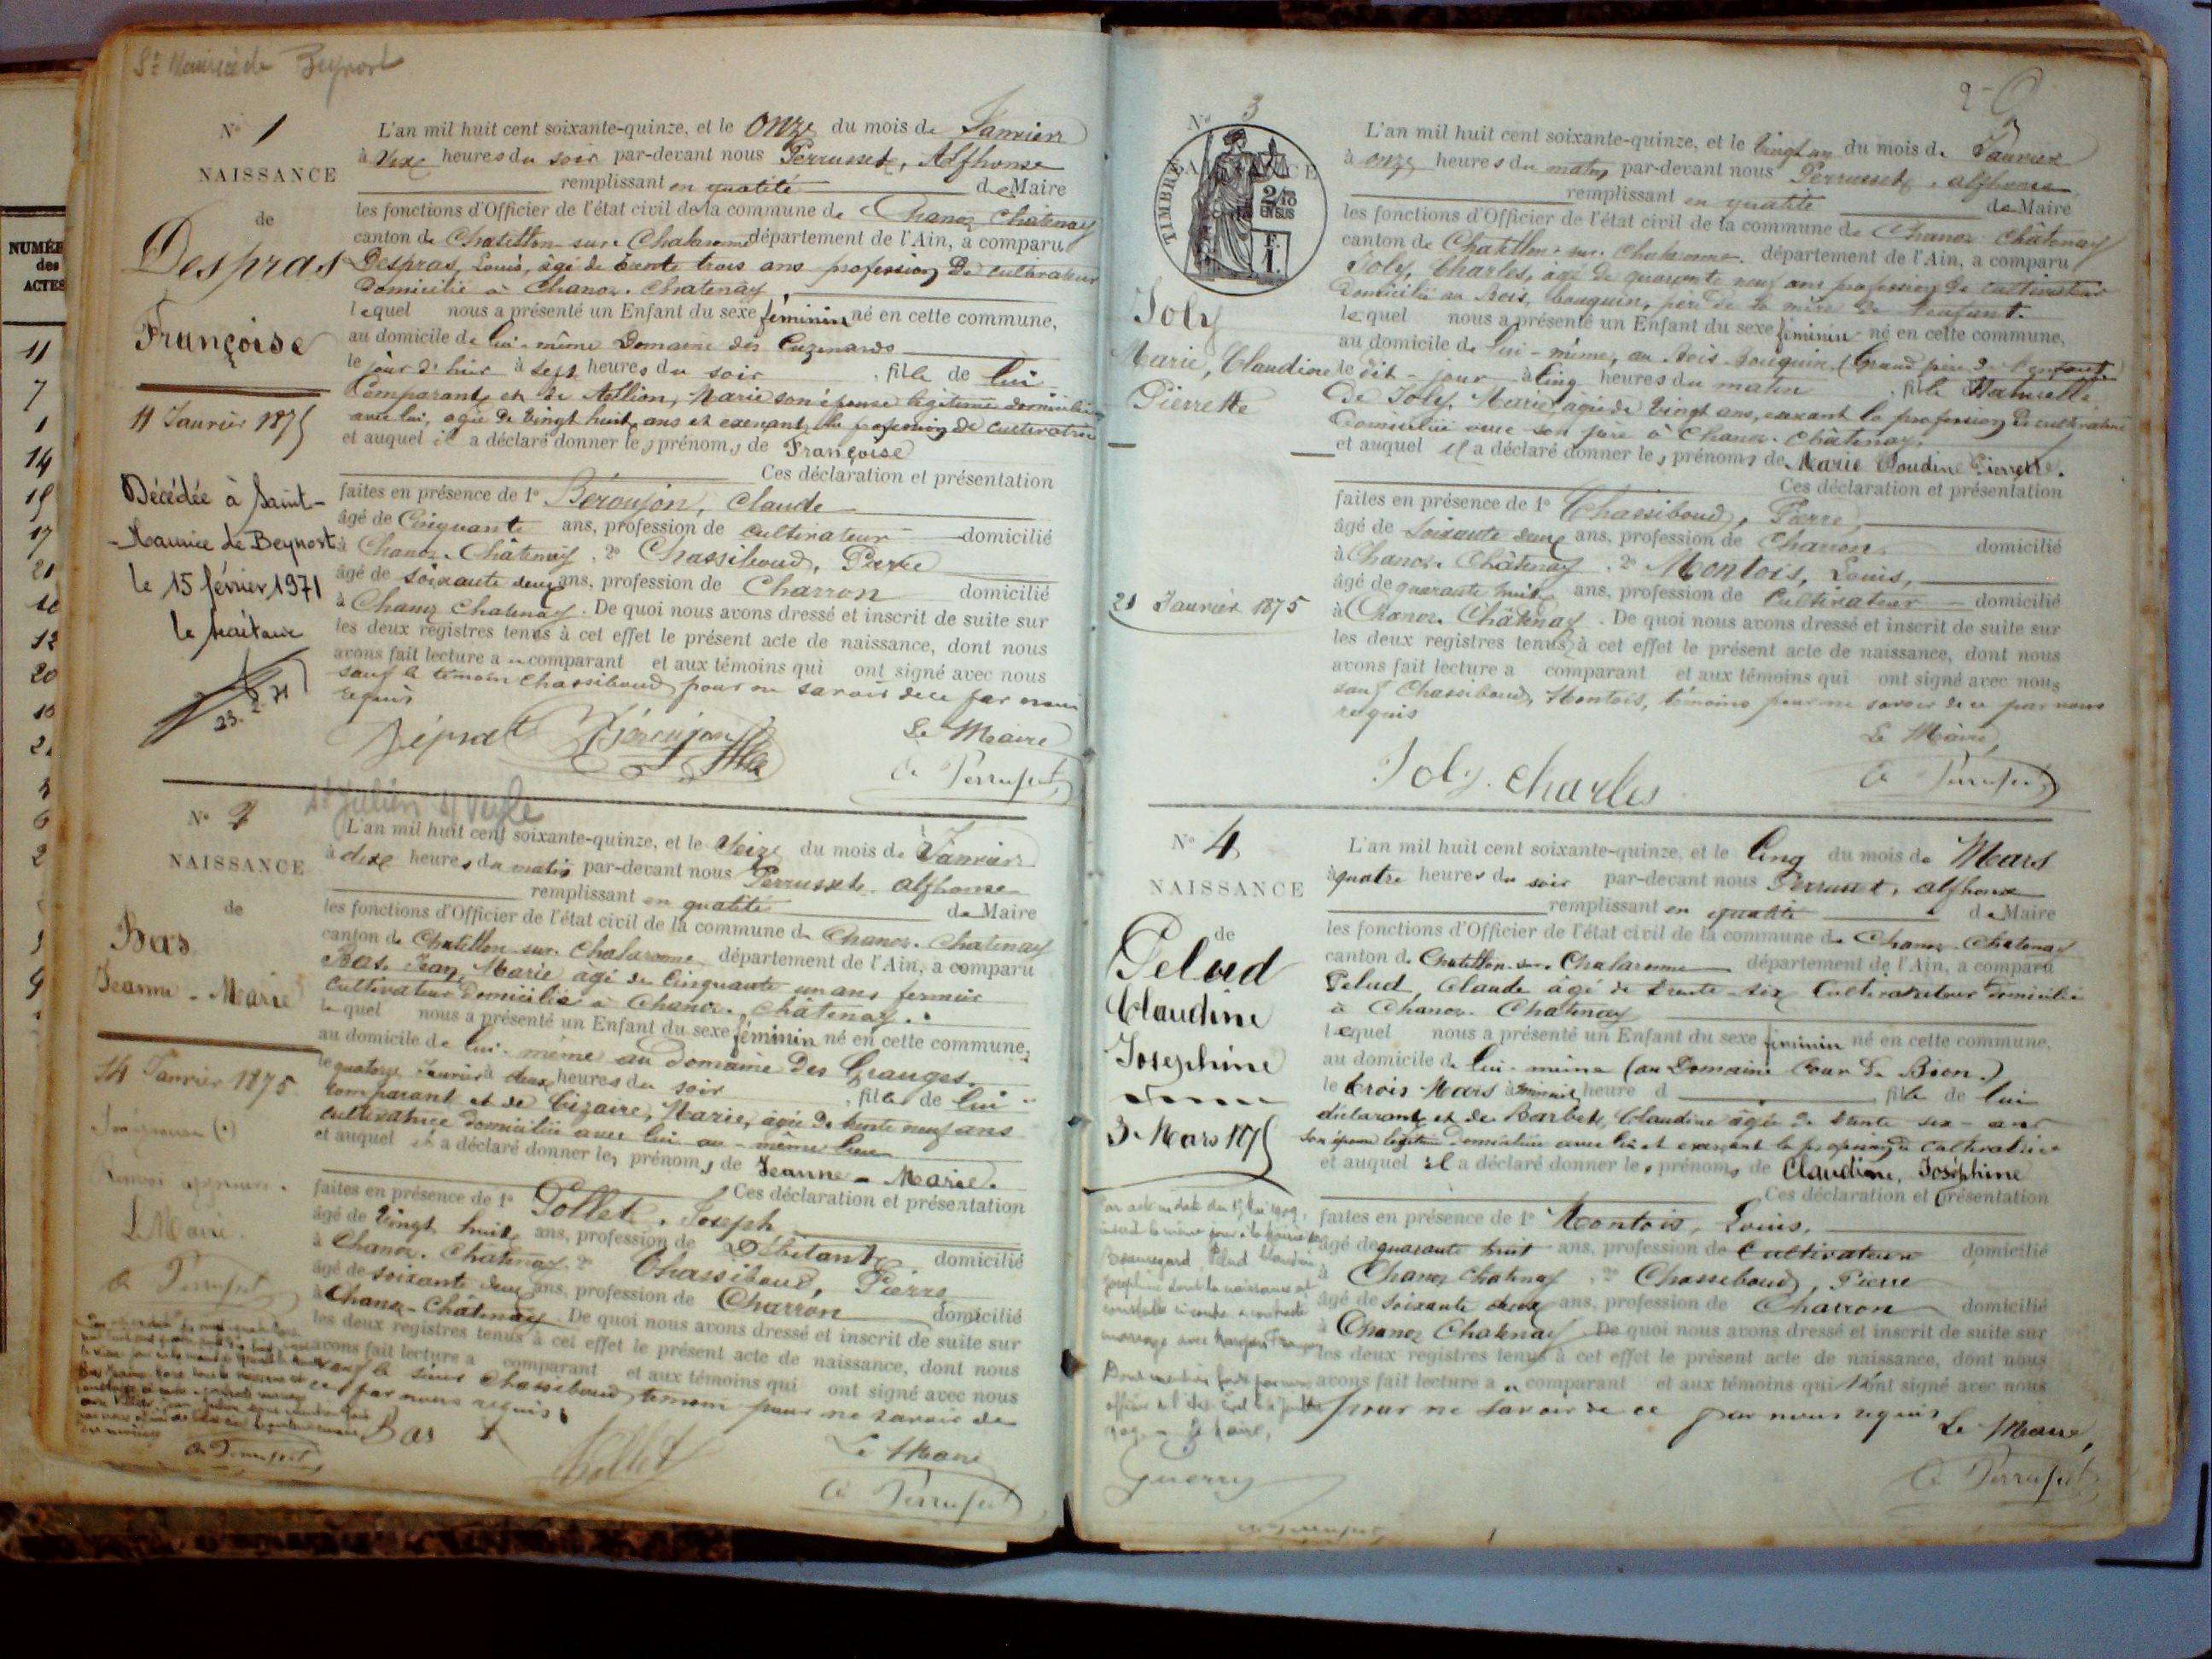 St Maurice de Beynost
NUMÉR
des
ACTES
11
7
1
14
17
12
20
N° 1
NAISSANCE
de
Despras
Françoise
11 Janvier 1875
Décédée à Saint-
-Maurice de Beynost
le 15 février 1971
23.2.71
L'an mil huit cent soixante-quinze, et le onze du mois de Janvier
à heures du soir par-devant nous Perrusset, Alfhonse
remplissant en qualité de Maire
les fonctions d'Officier de l'état civil de la commune de Chanoz Chatenay
canton de Chatillon-sur-Chalaronne département de l'Ain, a comparu
Despras, Louis, âgé de trente trois ans profession De cultivateur
Domicilié à Chanoz-Chatenay
lequel nous a présenté un Enfant du sexe féminin né en cette commune,
au domicile de lui-même Domaine des
le jour d'hier à sept heures du soir , fille de lui
Comparant et de Marie son épouse légitime domiciliée
avec lui, agée De Vingt huit ans et exerçant la profession De cultivatrice
et auquel il a déclaré donner les prénoms de Françoise
Ces déclaration et présentation
faites en présence de 1° Béroujon, Claude
âgé de Cinquante ans, profession de cultivateur domicilié
à Chanoz-Châtenay, 2° Chassiboud, Pierre
âgé de soixante deux ans, profession de Charron domicilié
à Chanoz Chatenay. De quoi nous avons dressé et inscrit de suite sur
les deux registres tenus à cet effet le présent acte de naissance, dont nous
avons fait lecture au comparant et aux témoins qui ont signé avec nous
sauf le témoin Chassiboud pour ne savoir de ce par nous
requis
Déprat Béroujon
Le Maire
A Perrusset
St Julien s/ Veyle
N° 2
NAISSANCE
de
Bas
Jeanne-Marie
14 Janvier 1875
Le Maire
A Perrusset
L'an mil huit cent soixante-quinze, et le Seize du mois de Janvier
à dix heures du matin par-devant nous Perrusset alfhonse
remplissant en qualité de Maire
les fonctions d'Officier de l'état civil de la commune de Chanoz-Chatenay
canton de Chatillon-sur-Chalaronne département de l'Ain, a comparu
Bas, Jean Marie agé de Cinquante un ans fermier
Cultivateur Domicilié à Chanoz-Châtenay.
lequel nous a présenté un Enfant du sexe féminin né en cette commune,
au domicile de lui-même au Domaine Des Granges.
le quatorze Janvier à deux heures du soir , fille de lui
comparant et de Cizaire, Marie, agée De trente neuf ans
cultivatrice domiciliée avec lui au-même lieu
et auquel il a déclaré donner les prénoms de Jeanne-Marie.
Ces déclaration et présentation
faites en présence de 1° Pollet, Joseph
âgé de Vingt huit ans, profession de Débitant domicilié
à Chanoz-Chatenay 2° Chassiboud, Pierre
âgé de soixante deux ans, profession de Charron domicilié
à Chanoz-Châtenay De quoi nous avons dressé et inscrit de suite sur
les deux registres tenus à cet effet le présent acte de naissance, dont nous
avons fait lecture a comparant et aux témoins qui ont signé avec nous
sauf le sieur Chassiboud, témoin pour ne savoir de
ce par nous requis
Bas Pollet
Le Maire
A Perrusset
A Perrusset
N° 3
TIMBRE
2/10
EN SUS
F.
1.
Joly
Marie, Claudine
Pierrette
21 Janvier 1875
L'an mil huit cent soixante-quinze, et le Vingt un du mois de Janvier
à onze heures du matin par-devant nous Perrusset, alfhonse
remplissant en qualité de Maire
les fonctions d'Officier de l'état civil de la commune de Chanoz Châtenay
canton de Chatillon-sur-Chalaronne département de l'Ain, a comparu
Joly, Charles, agé de quarante neuf ans profession de cultivateur
Domicilié au Bois bouquin, père de la mère de l'enfant.
lequel nous a présenté un Enfant du sexe féminin né en cette commune,
au domicile de lui-même, au Bois Bouquin (Grand père de l'enfant)
le dit-jour à Cinq heures du matin , fille Naturelle
De Joly, Marie, âgée de Vingt ans, exerçant la profession De cultivatrice
Domiciliée avec son père à Chanoz-Châtenay.
et auquel il a déclaré donner les prénoms de Marie Claudine Pierrette.
Ces déclaration et présentation
faites en présence de 1° Chassiboud, Pierre
âgé de Soixante deux ans, profession de Charron domicilié
à Chanoz-Châtenay, 2° Montois, Louis,
âgé de quarante huit ans, profession de Cultivateur domicilié
à Chanoz-Châtenay. De quoi nous avons dressé et inscrit de suite sur
les deux registres tenus à cet effet le présent acte de naissance, dont nous
avons fait lecture a comparant et aux témoins qui ont signé avec nous
sauf Chassiboud, Montois, témoins pour ne savoir de ce par nous
requis
Le Maire,
Joly. Charles
A Perrusset
N° 4
NAISSANCE
de
Pelud
Claudine
Josephine
3 Mars 1875
L'an mil huit cent soixante-quinze, et le Cinq du mois de Mars
à quatre heures du soir par-devant nous Perrusset, alfhonse
remplissant en qualité de Maire
les fonctions d'Officier de l'état civil de la commune de Chanoz-Chatenay
canton de Chatillon-sur-Chalaronne département de l'Ain, a comparu
Pelud, Claude agé de trente-six Cultivateur domicilié
à Chanoz-Chatenay
lequel nous a présenté un Enfant du sexe féminin né en cette commune,
au domicile de lui-même (au Domaine Cour De Bion.)
le trois Mars à minuit heure d , fille de lui
déclarant et de Barbet, Claudine âgée de trente six-ans
son épouse légitime domiciliée avec lui et exerçant la profession de cultivatrice
et auquel il a déclaré donner les prénoms de Claudine, Joséphine
Ces déclaration et présentation
faites en présence de 1° Montois, Louis,
âgé de quarante huit ans, profession de Cultivateur domicilié
à Chanoz Chatenay, 2° Chassiboud, Pierre
âgé de soixante deux ans, profession de Charron domicilié
à Chanoz Chatenay De quoi nous avons dressé et inscrit de suite sur
les deux registres tenus à cet effet le présent acte de naissance, dont nous
avons fait lecture au comparant et aux témoins qui n'ont signé avec nous
pour ne savoir de ce par nous requis
Le Maire,
A Perrusset
Par acte en date du 15 mai 1909,
inscrit le même jour à la mairie de
Beauregard, Pelud Claudine
Joséphine dont la naissance est
constatée ci-contre a contracté
mariage avec
Dont mention faite par nous
officier de l'état civil le Juillet
Le Maire,
Guerry